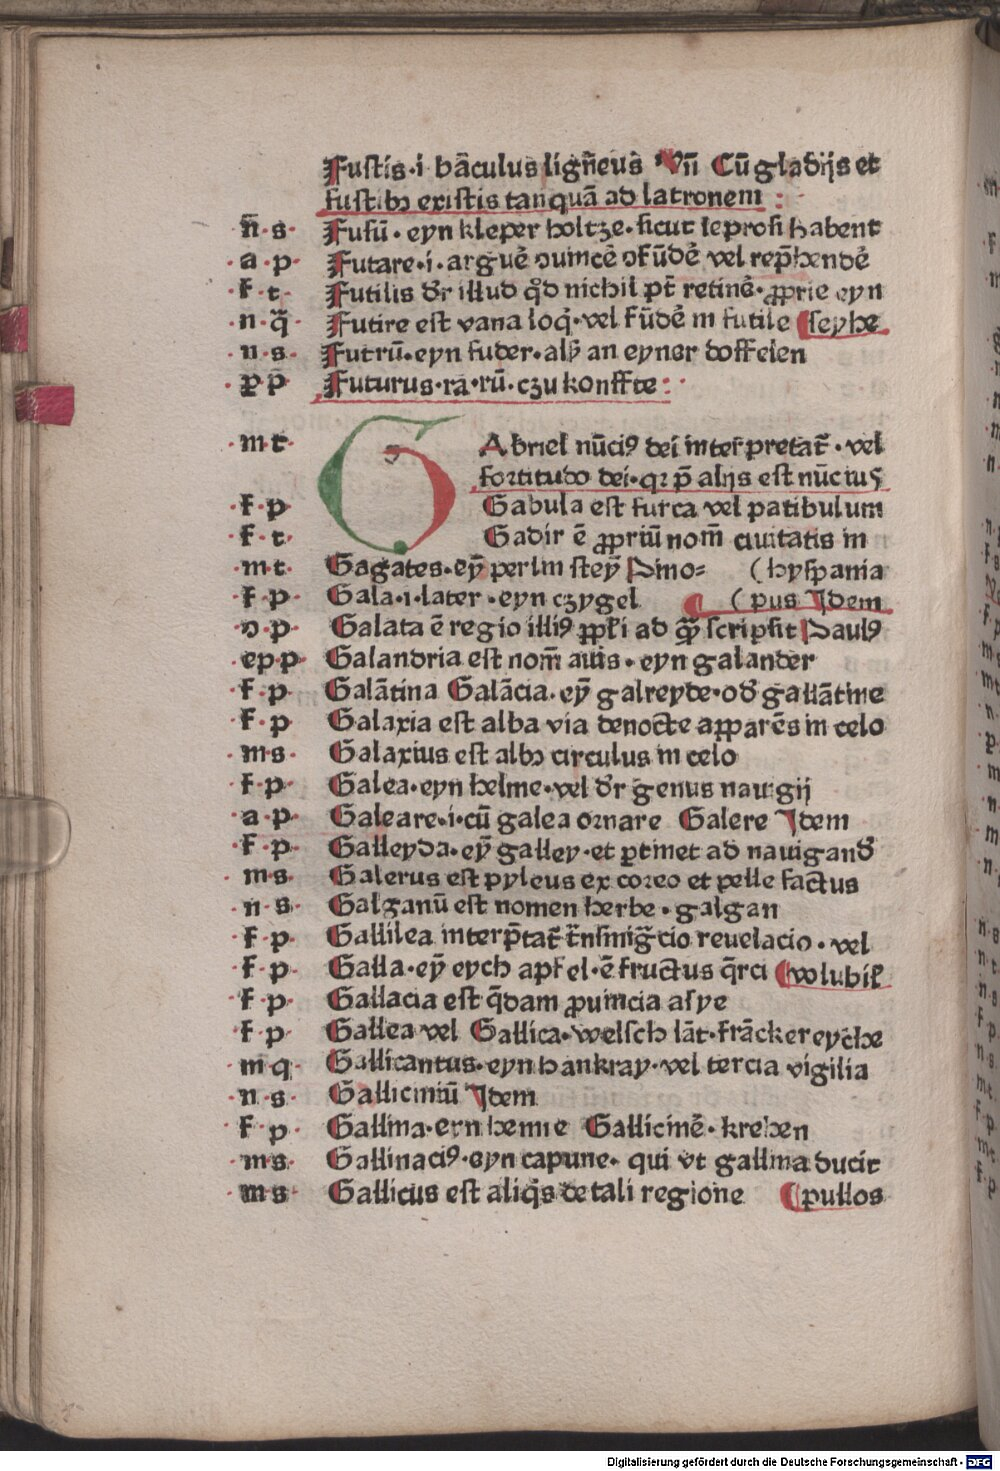 Fustis·i bãculus ligñeus Vñ Cũ gladijs et
fustibꝫ existis tanquã ad latronem :
n̄·s· Fusũ·eyn kleper holtze·sicut leprosi habent
·a·p· Futare·i·arguẽ ꝯuincẽ ꝯfũdẽ vel rep̄hendẽ
·f·t· Futilis dr̃ illud qd̾ nichil pt̃ retinẽ·ꝓprie eyn
·n·q̃· Futire est vana loq̃·vel fũdẽ in futile (seyhe
·n·s· Futrũ·eyn fuder·alß an eyner doffelen
·ꝑp̄ Futurus·ra·rũ·czu konffte :·
·m·t· GAbriel nũciꝰ dei interpretat̃·vel
fortitudo dei·qꝛ p̄ alijs est nũciuꝰ
·f·p· Gabula est furca vel patibulum
·f·t· Gadir ẽ ꝓpriũ nom̃ ciuitatis in
·m·t· Gagates·eyͫ perlin steyͫ Pino= (hyspania
·f·p· Gala·i·later·eyn czygel (pus Idem
·ꝯ·p· Galata ẽ regio illiꝰ ꝓpl̃i ad quã scripsit Paulꝰ
·ep·p· Galandria est nom̃ auis·eyn galander
·f·p· Galãtina Galãcia·eyͫ galreyde·od̾ gallãtine
·f·p Galaxia est alba via denocte apparẽs in celo
·m·s· Galaxius est albꝫ circulus in celo
·f·p· Galea·eyn helme·vel dr̃ genus nauigij
·a·p· Galeare·i·cũ galea ornare Galere Idem
·f·p· Galleyda·eyͫ galley·et ꝑtinet ad nauigand̾
·m·s· Galerus est pyleus ex coreo et pelle factus
·n·s· Galganũ est nomen herbe·galgan
·f·p· Gallilea interp̄tat̃ t̃nsmig̃cio reuelacio·vel
·f·p· Galla·eyͫ eych apfel·ẽ fructus q̃rci (volubil̃
·f·p· Gallacia est q̃dam ꝓuincia asye
·f·p· Gallea vel Gallica·welsch lãt·frãckereyche
·m·q· Gallicantus·eyn hankray·vel tercia vigilia
·n·s· Galliciniũ Idem
·f·p· Gallina·eyn henne Gallicinẽ·krehen
·m·s· Gallinaciꝰ·eyn capune·qui vt gallina ducit
·m·s· Gallicus est aliq̃s de tali regione (pullos
Digitalisierung gefördert durch die Deutsche Forschungsgemeinschaft - DFG